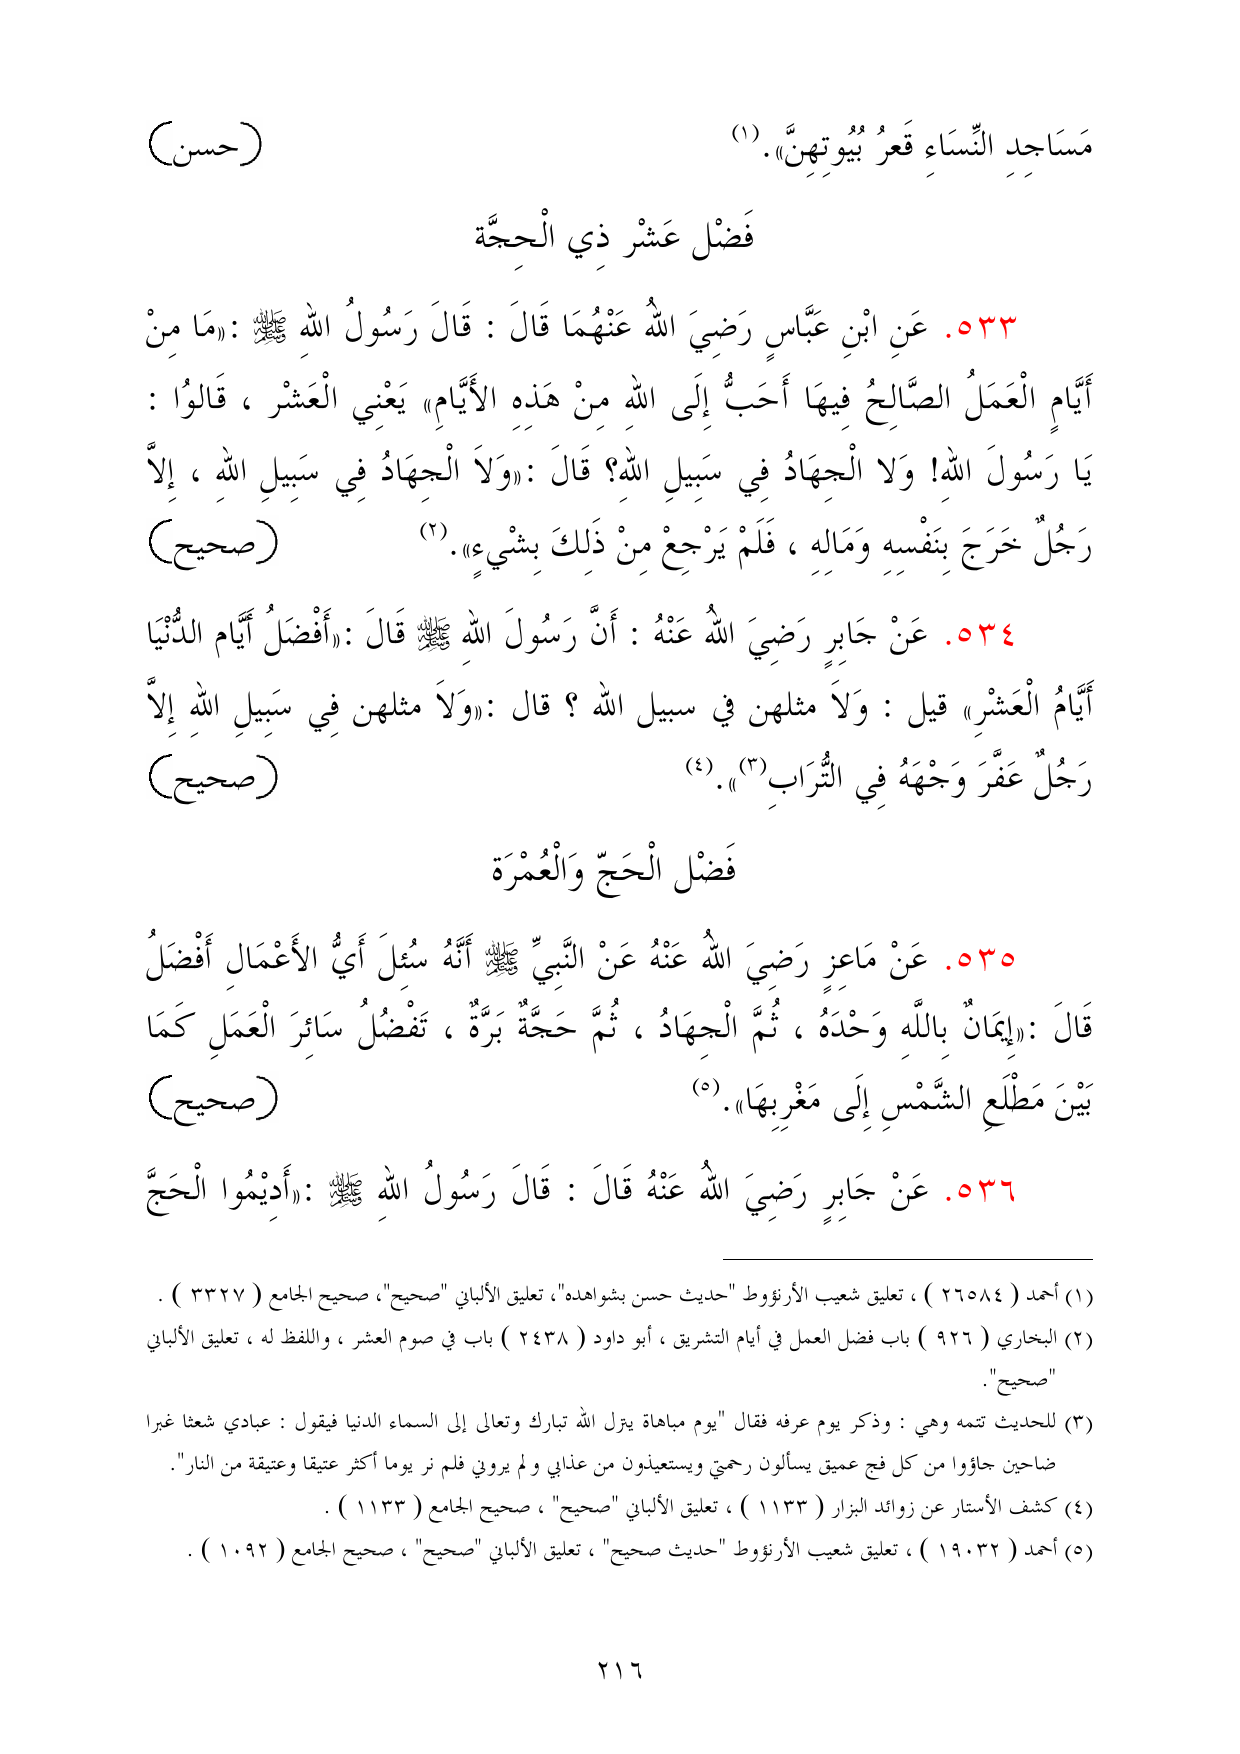 مَسَاجِدِ النِّسَاءِ قَعرُ بُيُوتِهِنَّ». (١) (حسن)
فَضْل عَشْر ذِي الْحِجَّة
٥٣٣. عَنِ ابْنِ عَبَّاسٍ رَضِيَ اللهُ عَنْهُمَا قَالَ : قَالَ رَسُولُ اللهِ ﷺ :«مَا مِنْ
أَيَّامٍ الْعَمَلُ الصَّالِحُ فِيهَا أَحَبُّ إِلَى اللهِ مِنْ هَذِهِ الأَيَّامِ» يَعْنِي الْعَشْر ، قَالوُا :
يَا رَسُولَ اللهِ! وَلا الْجِهَادُ فِي سَبِيلِ اللهِ؟ قَالَ :«وَلاَ الْجِهَادُ فِي سَبِيلِ اللهِ ، إِلاَّ
رَجُلٌ خَرَجَ بِنَفْسِهِ وَمَالِهِ ، فَلَمْ يَرْجِعْ مِنْ ذَلِكَ بِشْيءٍ». (٢) (صحيح)
٥٣٤. عَنْ جَابِرٍ رَضِيَ اللهُ عَنْهُ : أَنَّ رَسُولَ اللهِ ﷺ قَالَ :«أَفْضَلُ أَيَّام الدُّنْيَا
أَيَّامُ الْعَشْرِ» قيل : وَلاَ مثلهن في سبيل الله ؟ قال :«وَلاَ مثلهن فِي سَبِيلِ اللهِ إِلاَّ
رَجُلٌ عَفَّرَ وَجْهَهُ فِي التُّرَابِ(٣)». (٤) (صحيح)
فَضْل الْحَجّ وَالْعُمْرَة
٥٣٥. عَنْ مَاعِزٍ رَضِيَ اللهُ عَنْهُ عَنْ النَّبِيِّ ﷺ أَنَّهُ سُئِلَ أَيُّ الأَعْمَالِ أَفْضَلُ
قَالَ :«إِيمَانٌ بِاللَّهِ وَحْدَهُ ، ثُمَّ الْجِهَادُ ، ثُمَّ حَجَّةٌ بَرَّةٌ ، تَفْضُلُ سَائِرَ الْعَمَلِ كَمَا
بَيْنَ مَطْلَعِ الشَّمْسِ إِلَى مَغْرِبِهَا». (٥) (صحيح)
٥٣٦. عَنْ جَابِرٍ رَضِيَ اللهُ عَنْهُ قَالَ : قَالَ رَسُولُ اللهِ ﷺ :«أَدِيْمُوا الْحَجَّ
(١) أحمد ( ٢٦٥٨٤ ) ، تعليق شعيب الأرنؤوط "حديث حسن بشواهده"، تعليق الألباني "صحيح"، صحيح الجامع ( ٣٣٢٧ ) .
(٢) البخاري ( ٩٢٦ ) باب فضل العمل في أيام التشريق ، أبو داود ( ٢٤٣٨ ) باب في صوم العشر ، واللفظ له ، تعليق الألباني
"صحيح".
(٣) للحديث تتمه وهي : وذكر يوم عرفه فقال "يوم مباهاة ينزل الله تبارك وتعالى إلى السماء الدنيا فيقول : عبادي شعثا غبرا
ضاحين جاؤوا من كل فج عميق يسألون رحمتي ويستعيذون من عذابي و لم يروني فلم نر يوما أكثر عتيقا وعتيقة من النار".
(٤) كشف الأستار عن زوائد البزار ( ١١٣٣ ) ، تعليق الألباني "صحيح" ، صحيح الجامع ( ١١٣٣ ) .
(٥) أحمد ( ١٩٠٣٢ ) ، تعليق شعيب الأرنؤوط "حديث صحيح" ، تعليق الألباني "صحيح" ، صحيح الجامع ( ١٠٩٢ ) .
٢١٦